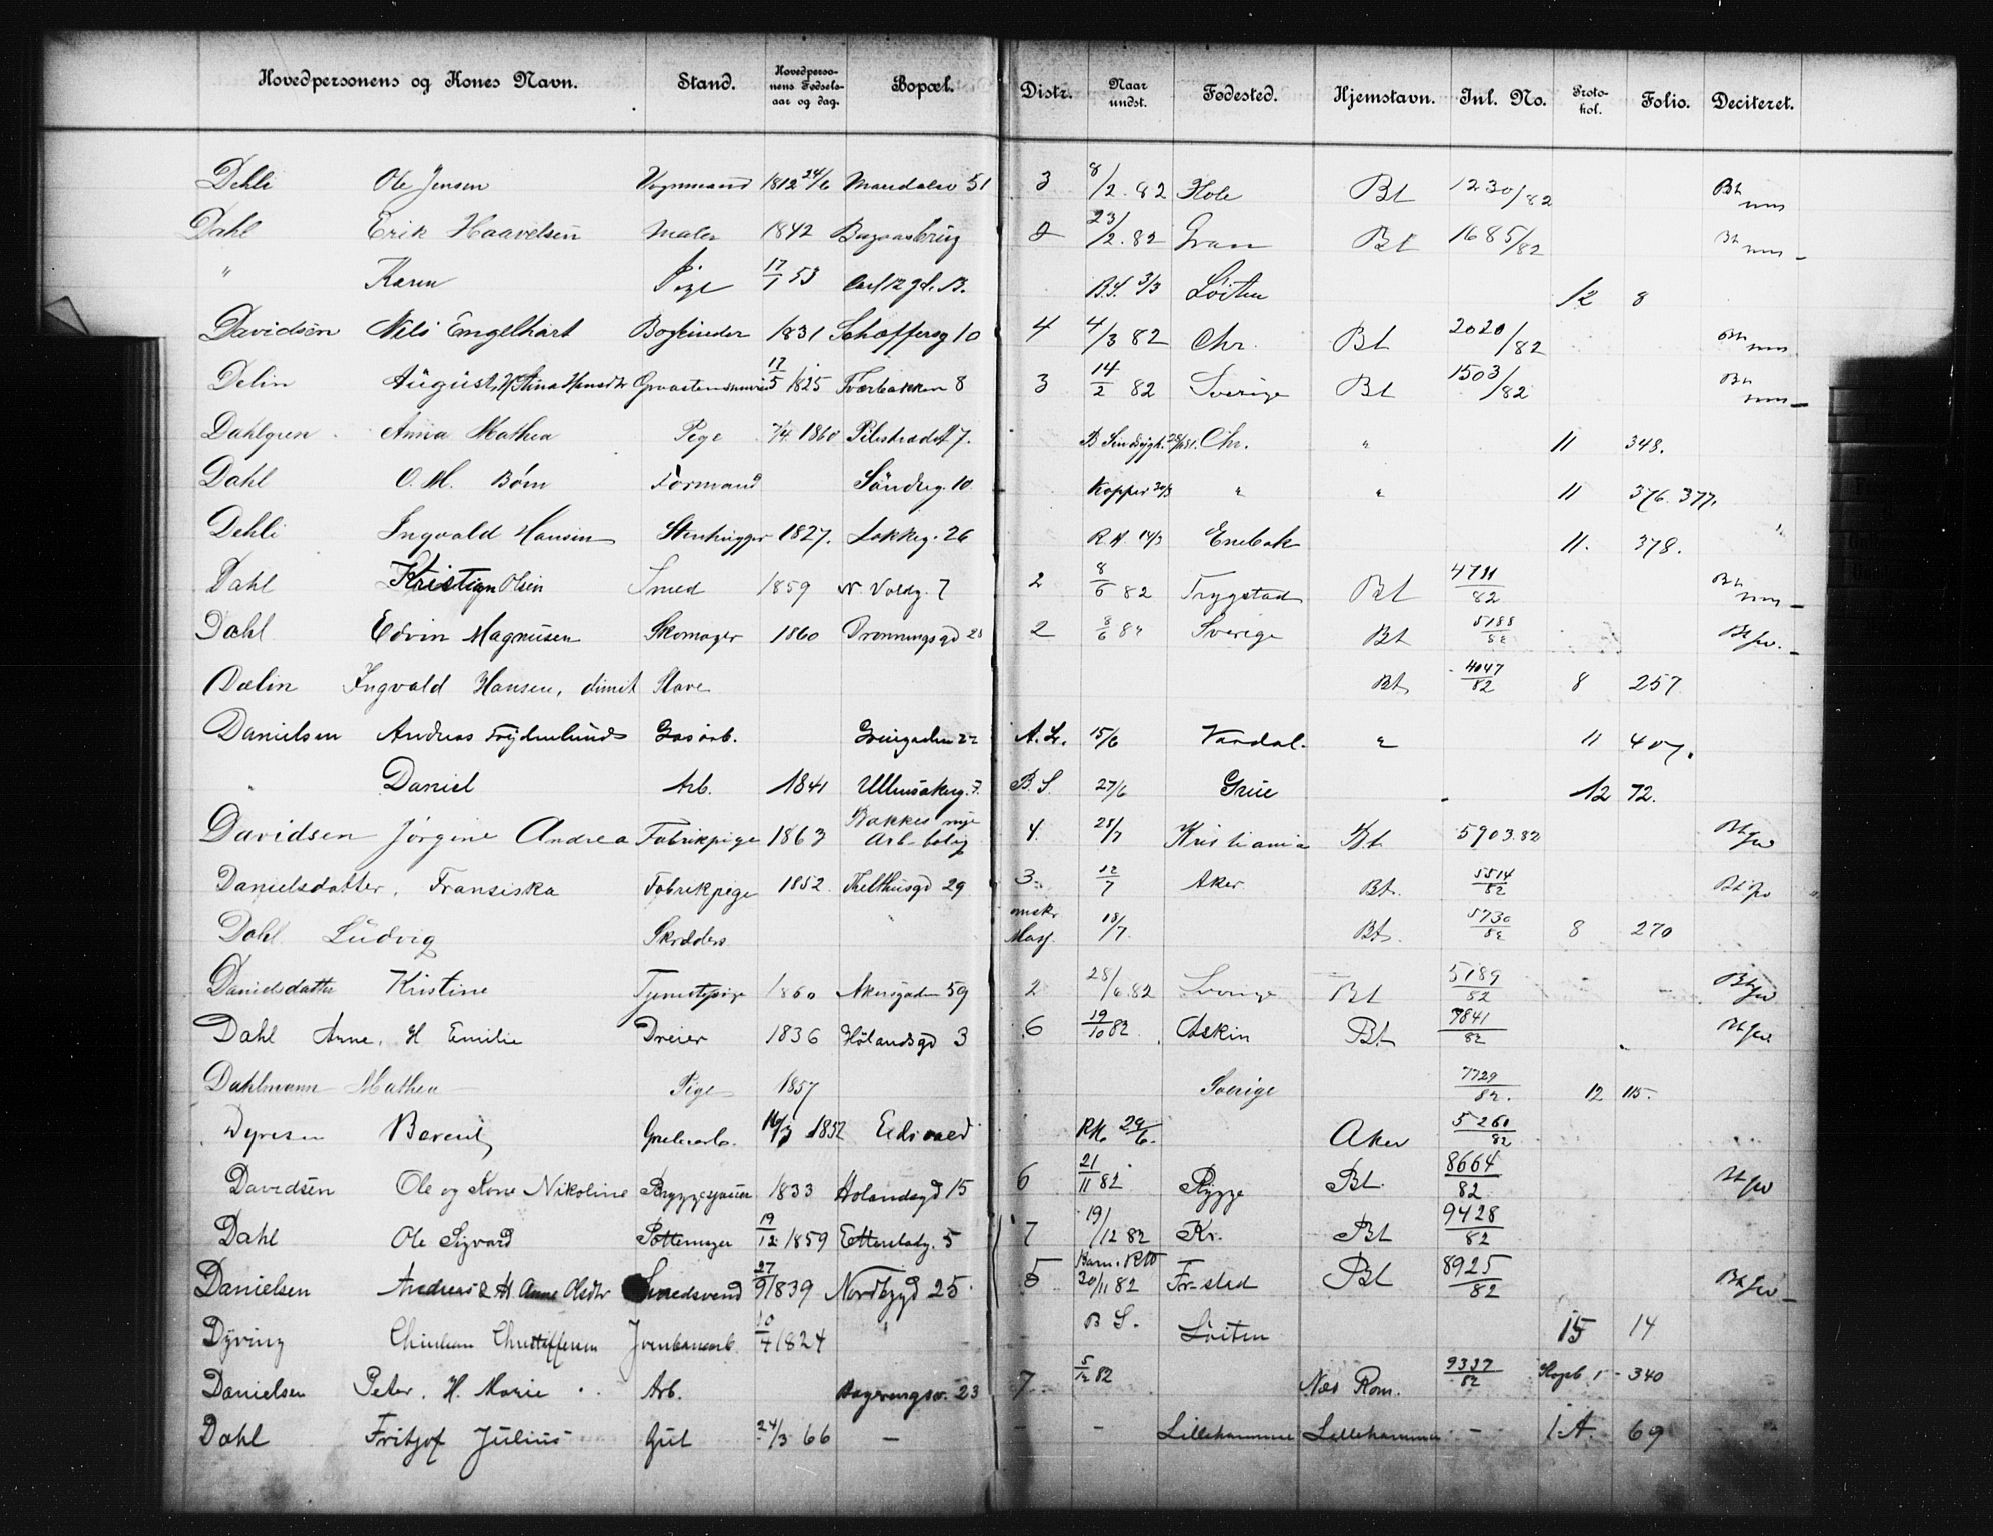 Hovedpersonens og Kones Navn. Stand. Hovedpersonens Fødselsaar og dag. Bopæl. Distr. Naar undst. Fødested. Hjemstavn. Inl. No. Protokol. Folio. Deciteret.
Dehli Ole Jensen Vognmand 1812 24/6 Maridalsv 51 3 8/2 82 Hole Bt 1230/82 Bt
Dahl Erik Haavelsen Maler 1842 2 23/2 82 Gran Bt 1685/82 Bt
" Karen Pige 17/7 53 B.S. 3/3 Löiten 12 8
Davidsen Nils Engelhart Bogbinder 1831 Schæffersg 10 4 4/3 82 Chr. Bt 2020/82
Delin August, 17/5 1825 Tværbakken 8 3 14/2 82 Sverige Bt 1503/82
Dahlgren Anna Mathea Pige 7/4 1860 Pilestrædet 7. Chr. " 11 348.
Dahl O. M. Börn Formand Söndreg. 10. Kopper 30/3 " " 11 376. 377.
Dehli Ingvald Hansen Stenhugger 1827. Lakkeg. 26 R.H. 14/3 Enebak 11. 378.
Dahl Kristian Olsen Smed 1859 N. Voldg. 7 2 8/6 82 Trygstad Bt 4711/82
Dahl Edvin Magnusen Skomager 1860 Dronningsgd 28 2 8/6 82 Sverige Bt 5188/82
Dælin Ingvald Hansen, dimit Slave Bt 4047/82 8 257
Danielsen Andreas Gasarb. 22 A. L. 15/6 Vardal. " 11 407.
" Daniel Arb. 1841 Ullensakerg. 7. B. S. 27/6 Grue 12 72.
Davidsen Jörgine Andrea Fabrikpige 1863 Bakkes nye Arb-bolig 4. 28/7 Kristiania Bt 5903.82
Danielsdatter, Fransiska Fabrikpige 1852. Thelthusgd 29 3. 12/7 Aker. Bt. 5514/82
Dahl Ludvig Skrædders 18/7 Bt. 5730/82 8 270
Danielsdatter Kristine Tjenestepige 1860 Akersgaden 59 2 28/6. 82 Sverige Bt 5189/82
Dahl Arne, H Emilie Dreier 1836 Hölandsgd 3 6 19/10 82 Askin Bt 7841/82
Dahlmann Mathea Pige 1857 Sverige 7729/82. 12 115.
Dyresen Berent 1852 Eidsvold RH. 29/6. Aker 5260/82
Davidsen Ole og Kone Nikoline Bryggesjauer 1833 Holandsgd 15 6 21/11 82 Rygge Bt. 8664/82
Dahl Ole Sigvard Pottemager 19/12 1859 Etterstadg. 5 7 19/12 82 Kr. Bt 9428/82
Danielsen Andreas & H Anne Olsdtr Smedsvend 27/9 1839 Nordbygd 25. 5 30/11 82 Fr-stad Bt 8925/82
Dyving Christian Christoffersen Jernbanearb. 10/4 1824 — B S. Löiten 15 14
Danielsen Peter, H. Marie Arb. 23 7 5/12 82 Næs Rom. 9337/82 340
Dahl Fritjof Julius Gut 24/3 66 — — — Lillehammer Lillehammer — 1.A. 69